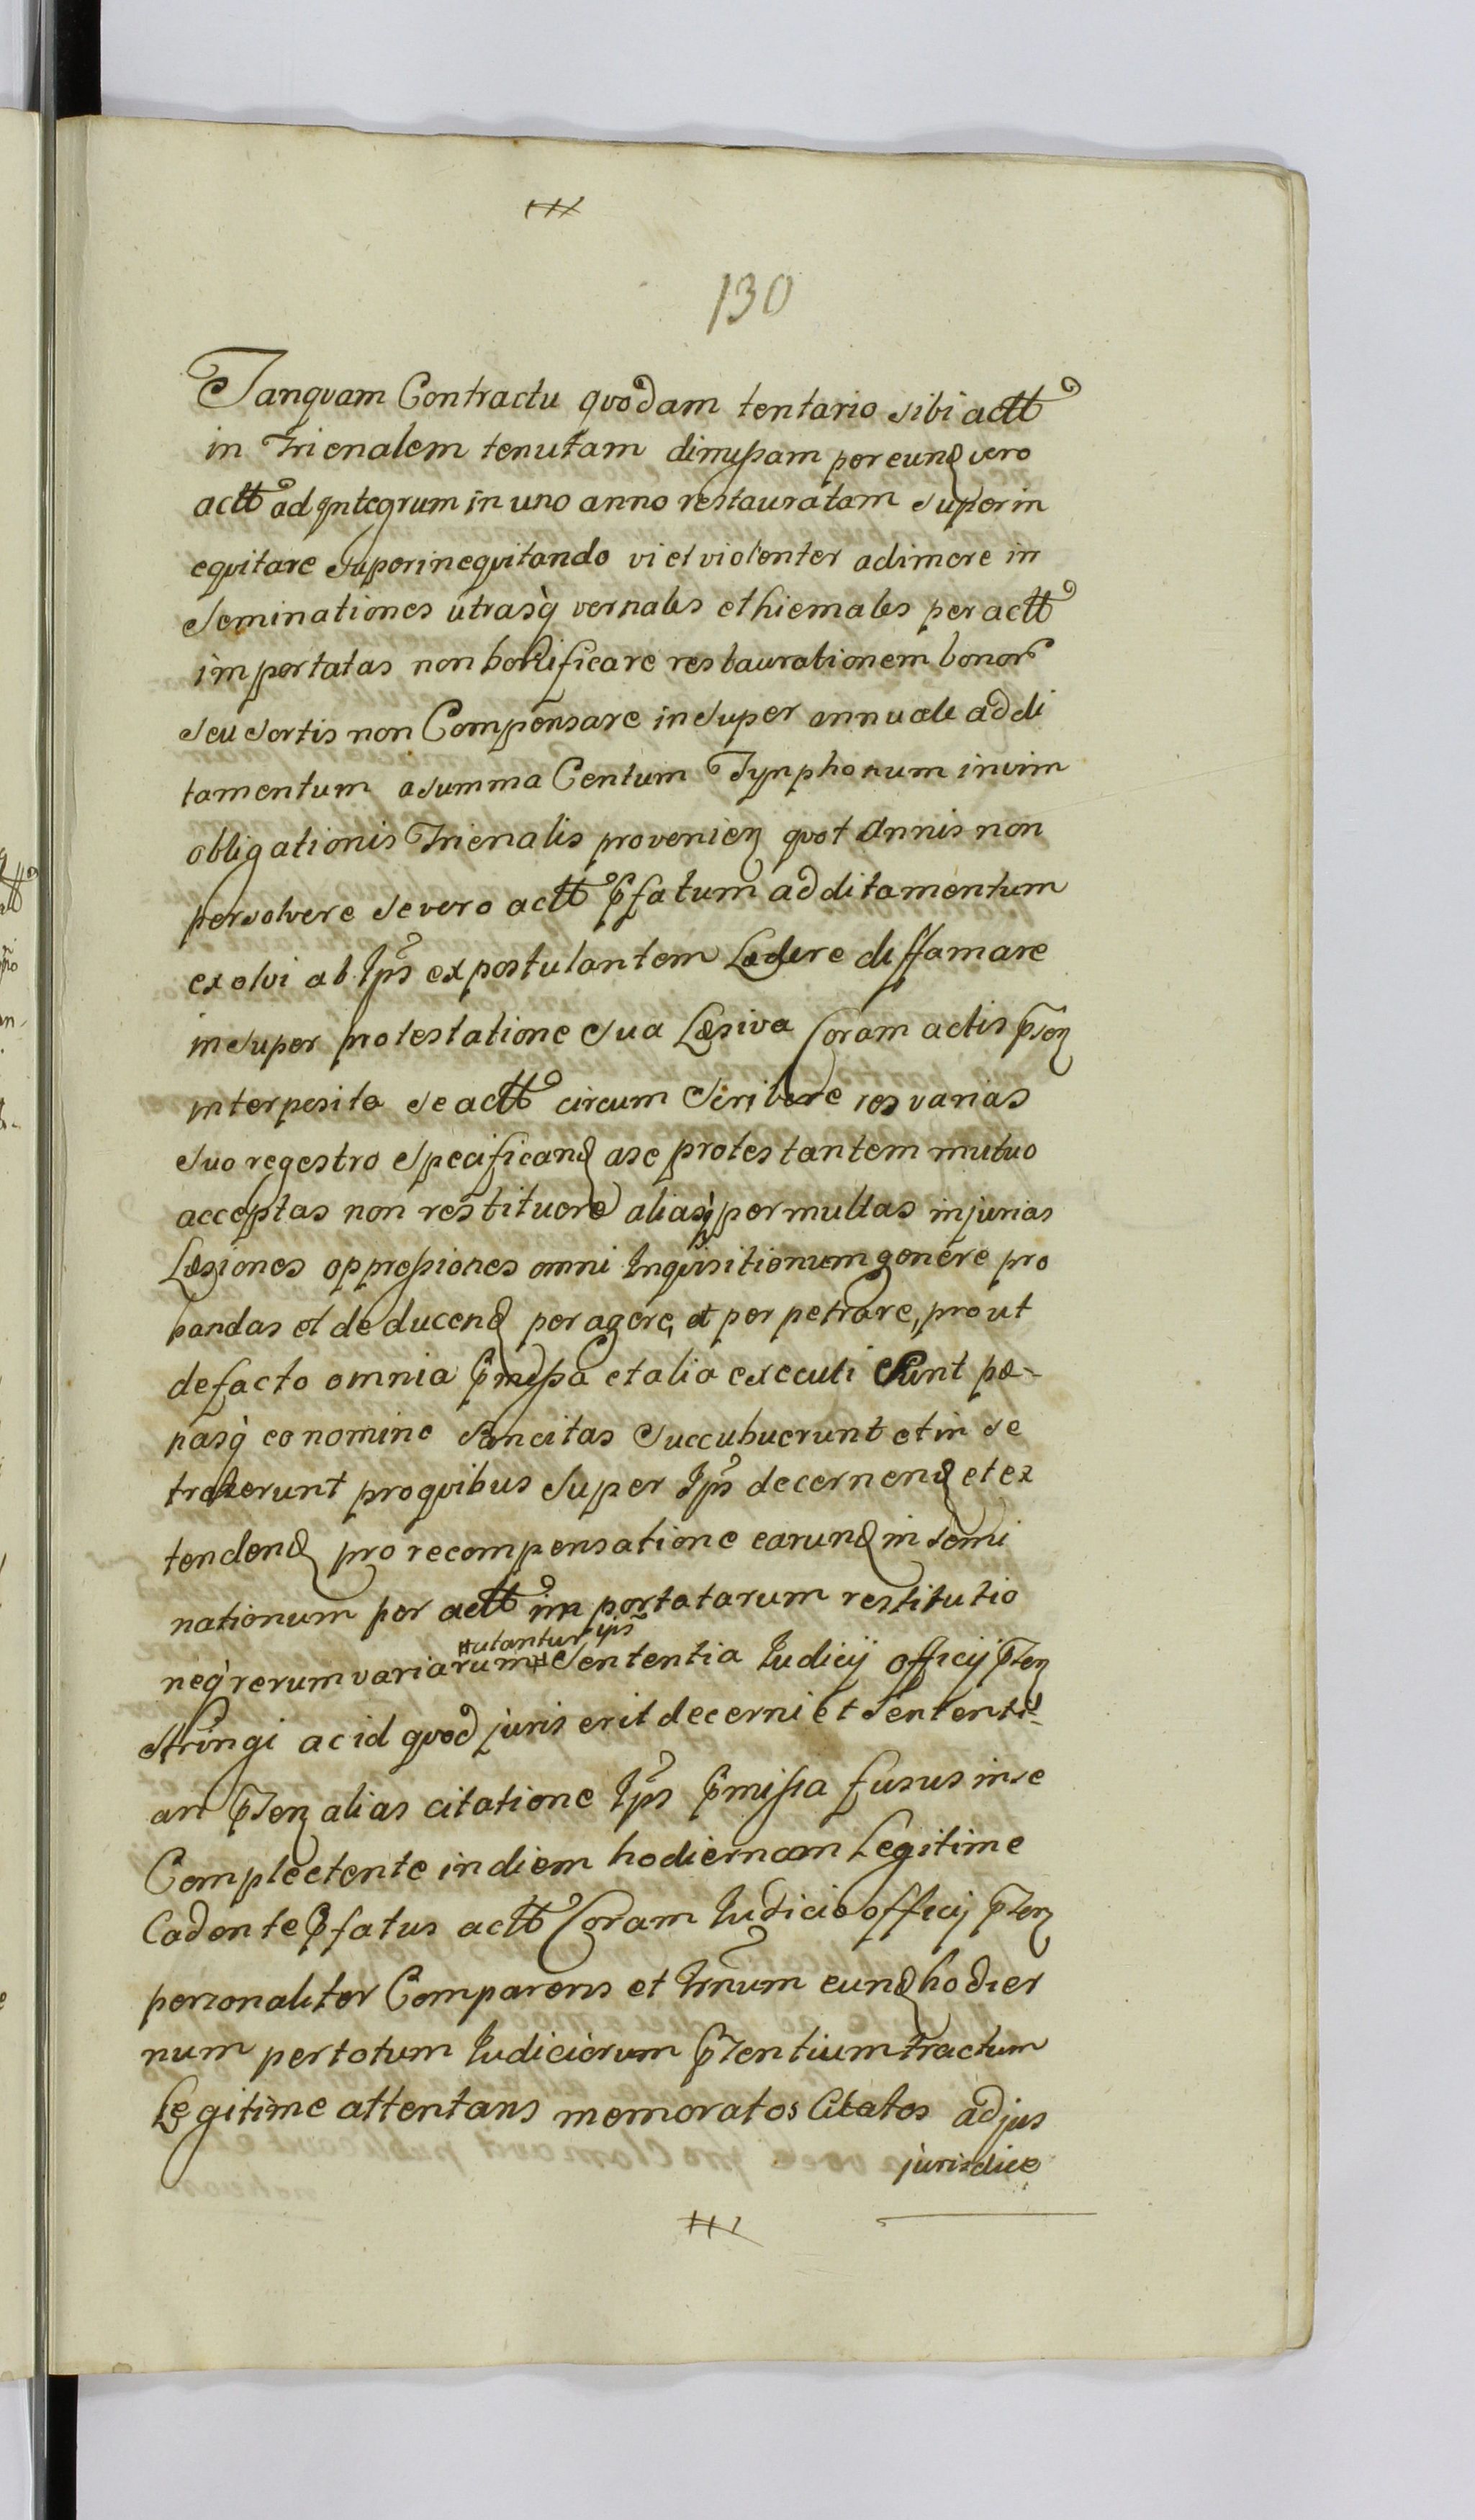 130
Tanqvam Contractu qvodam tentario sibi actt
in Trienalem tenutam dimissam per eund vero
actt ad Integrum in uno anno restauratam superin
eqvitare superineqvitando vi et violenter adimere in
seminationes utrasq vernales et hiemales per actt
importatas non bonificare restaurationem bonor
seu sortis non Compensare insuper annuale addi
tamentum a summa Centum Tynphonum in vim
obligationis Trienalis provenien qvot Annis non
persolvere se vero actt Pfatum additamentum
exolvi ab Ips expostulantem Ledere diffamare
insuper protestatione sua Læsiva Coram actis Psen
interposita se actt circum scribere res varias
suo regestro specificand a se protestantem mutuo
acceptas non restituere aliasq permultas injurias
Læsiones oppressiones omni Inqvisitionum genere pro
bandas et deducend peragere, et perpetrare, prout
defacto omnia Pmissa et alia executi sunt pæ-
nasq eo nomine sancitas succubuerunt et in se
traxerunt pro qvibus super Ips decernend et ex
tendend pro recompensatione earund in semi
nationum per actt importatarum restitutio
utantur ips
neq rerum variarum # sententia Iudicij officij Psen
stringi ac id qvod juris erit decerni et sententi-
ari Psen alias citatione Ips Pmissa fusius in se
Complectente in diem hodiernam Legitime
Cadente Pfatus actt Coram Iudicio officij Psen
personaliter Comparens et Trnum eund hodier
num per totum Iudiciorum Psentium tractum
Legitime attentans memoratos Citatos ad jus
jurisdice